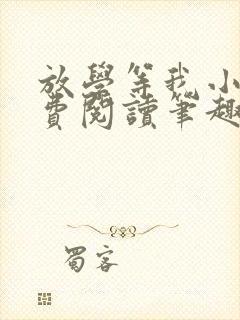 放學等我小
費閱讀筆趣
蜀客